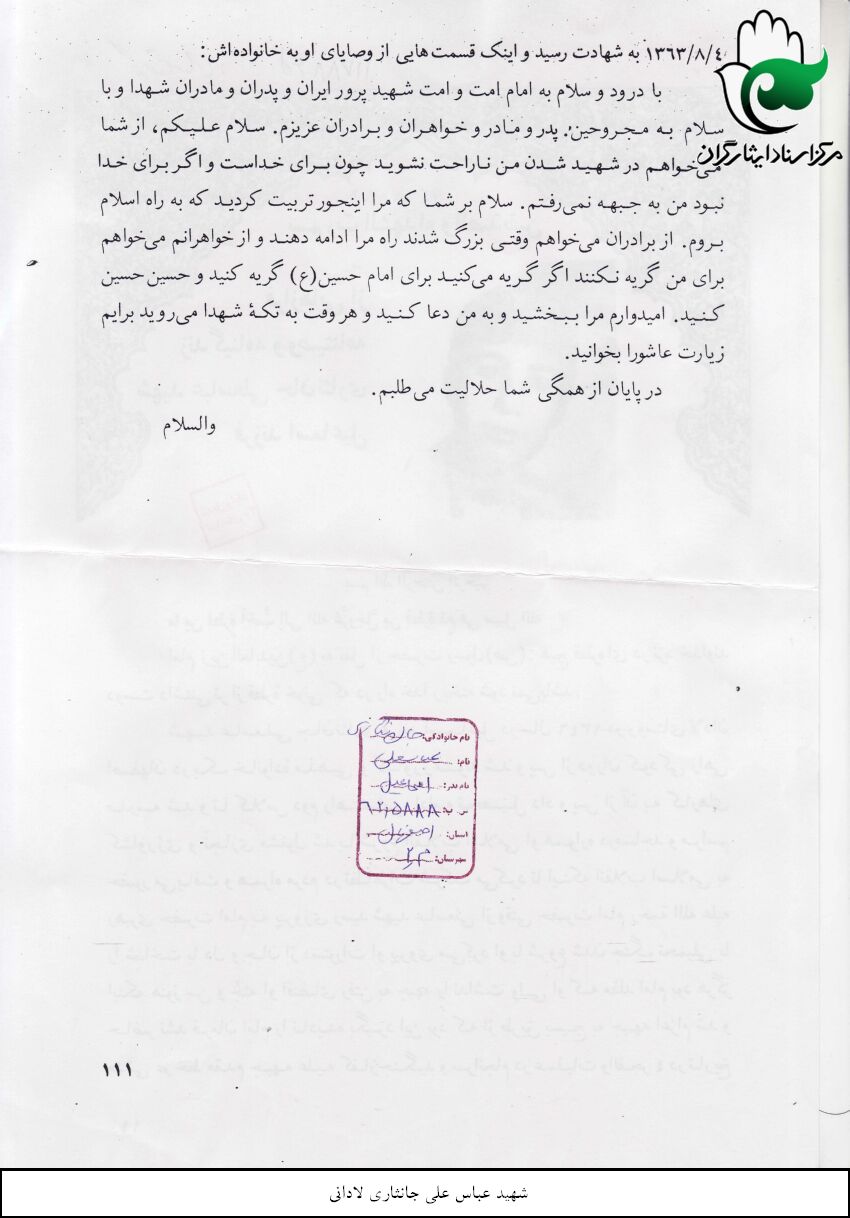 ۱۳۶۳/۸/٤ به شهادت رسید و اینک قسمت‌هایی از وصایای او به خانواده‌اش:
با درود و سلام به امام امت و امت شهید پرور ایران و پدران و مادران شهدا و با
سلام به مجروحین. پدر و مادر و خواهران و برادران عزیزم. سلام علیکم، از شما
می‌خواهم در شهید شدن من ناراحت نشوید چون برای خداست و اگر برای خدا
نبود من به جبهه نمی‌رفتم. سلام بر شما که مرا اینجور تربیت کردید که به راه اسلام
بروم. از برادران می‌خواهم وقتی بزرگ شدند راه مرا ادامه دهند و از خواهرانم می‌خواهم
برای من گریه نکنند اگر گریه می‌کنید برای امام حسین(ع) گریه کنید و حسین حسین
کنید. امیدوارم مرا ببخشید و به من دعا کنید و هر وقت به تکهٔ شهدا می‌روید برایم
زیارت عاشورا بخوانید.
در پایان از همگی شما حلالیت می‌طلبم.
والسلام
مرکز اسناد ایثارگران
نام خانوادگی: جانثاری
نام: عباسعلی
نام پدر: اسماعیل
استان: اصفهان
شهرستان:
۱۱۱
شهید عباس علی جانثاری لادانی